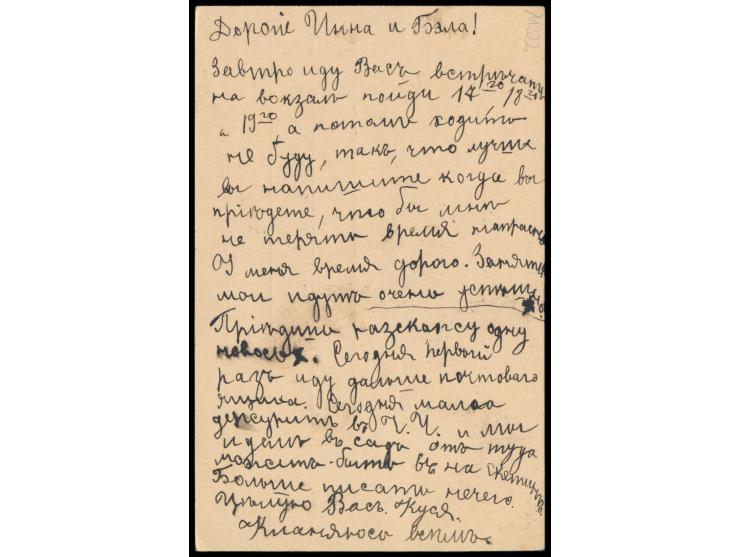 Дорогіе Инна и Бэла!
Завтра иду Васъ встрѣчать
на вокзалъ пойду 17²⁰ 18²⁰
и 19²⁰, а потомъ ходить
не буду, такъ, что лучше
вы напишите когда вы
пріѣдете, что бы мнѣ
не терять время напрасно
У меня время дорого. Занятія
мои идутъ очень успѣшно.
Пріѣдите разскажу одну
новость. Сегодня первый
разъ иду дальше почтоваго
ящика. Сегодня мама
дежуритъ въ Ч.Ч. и мы
идемъ въ садъ отъ туда
можетъ-быть въ на скетингъ.
Больше писать нечего.
Цѣлую Васъ. Куся.
Кланяюсь всѣмъ.